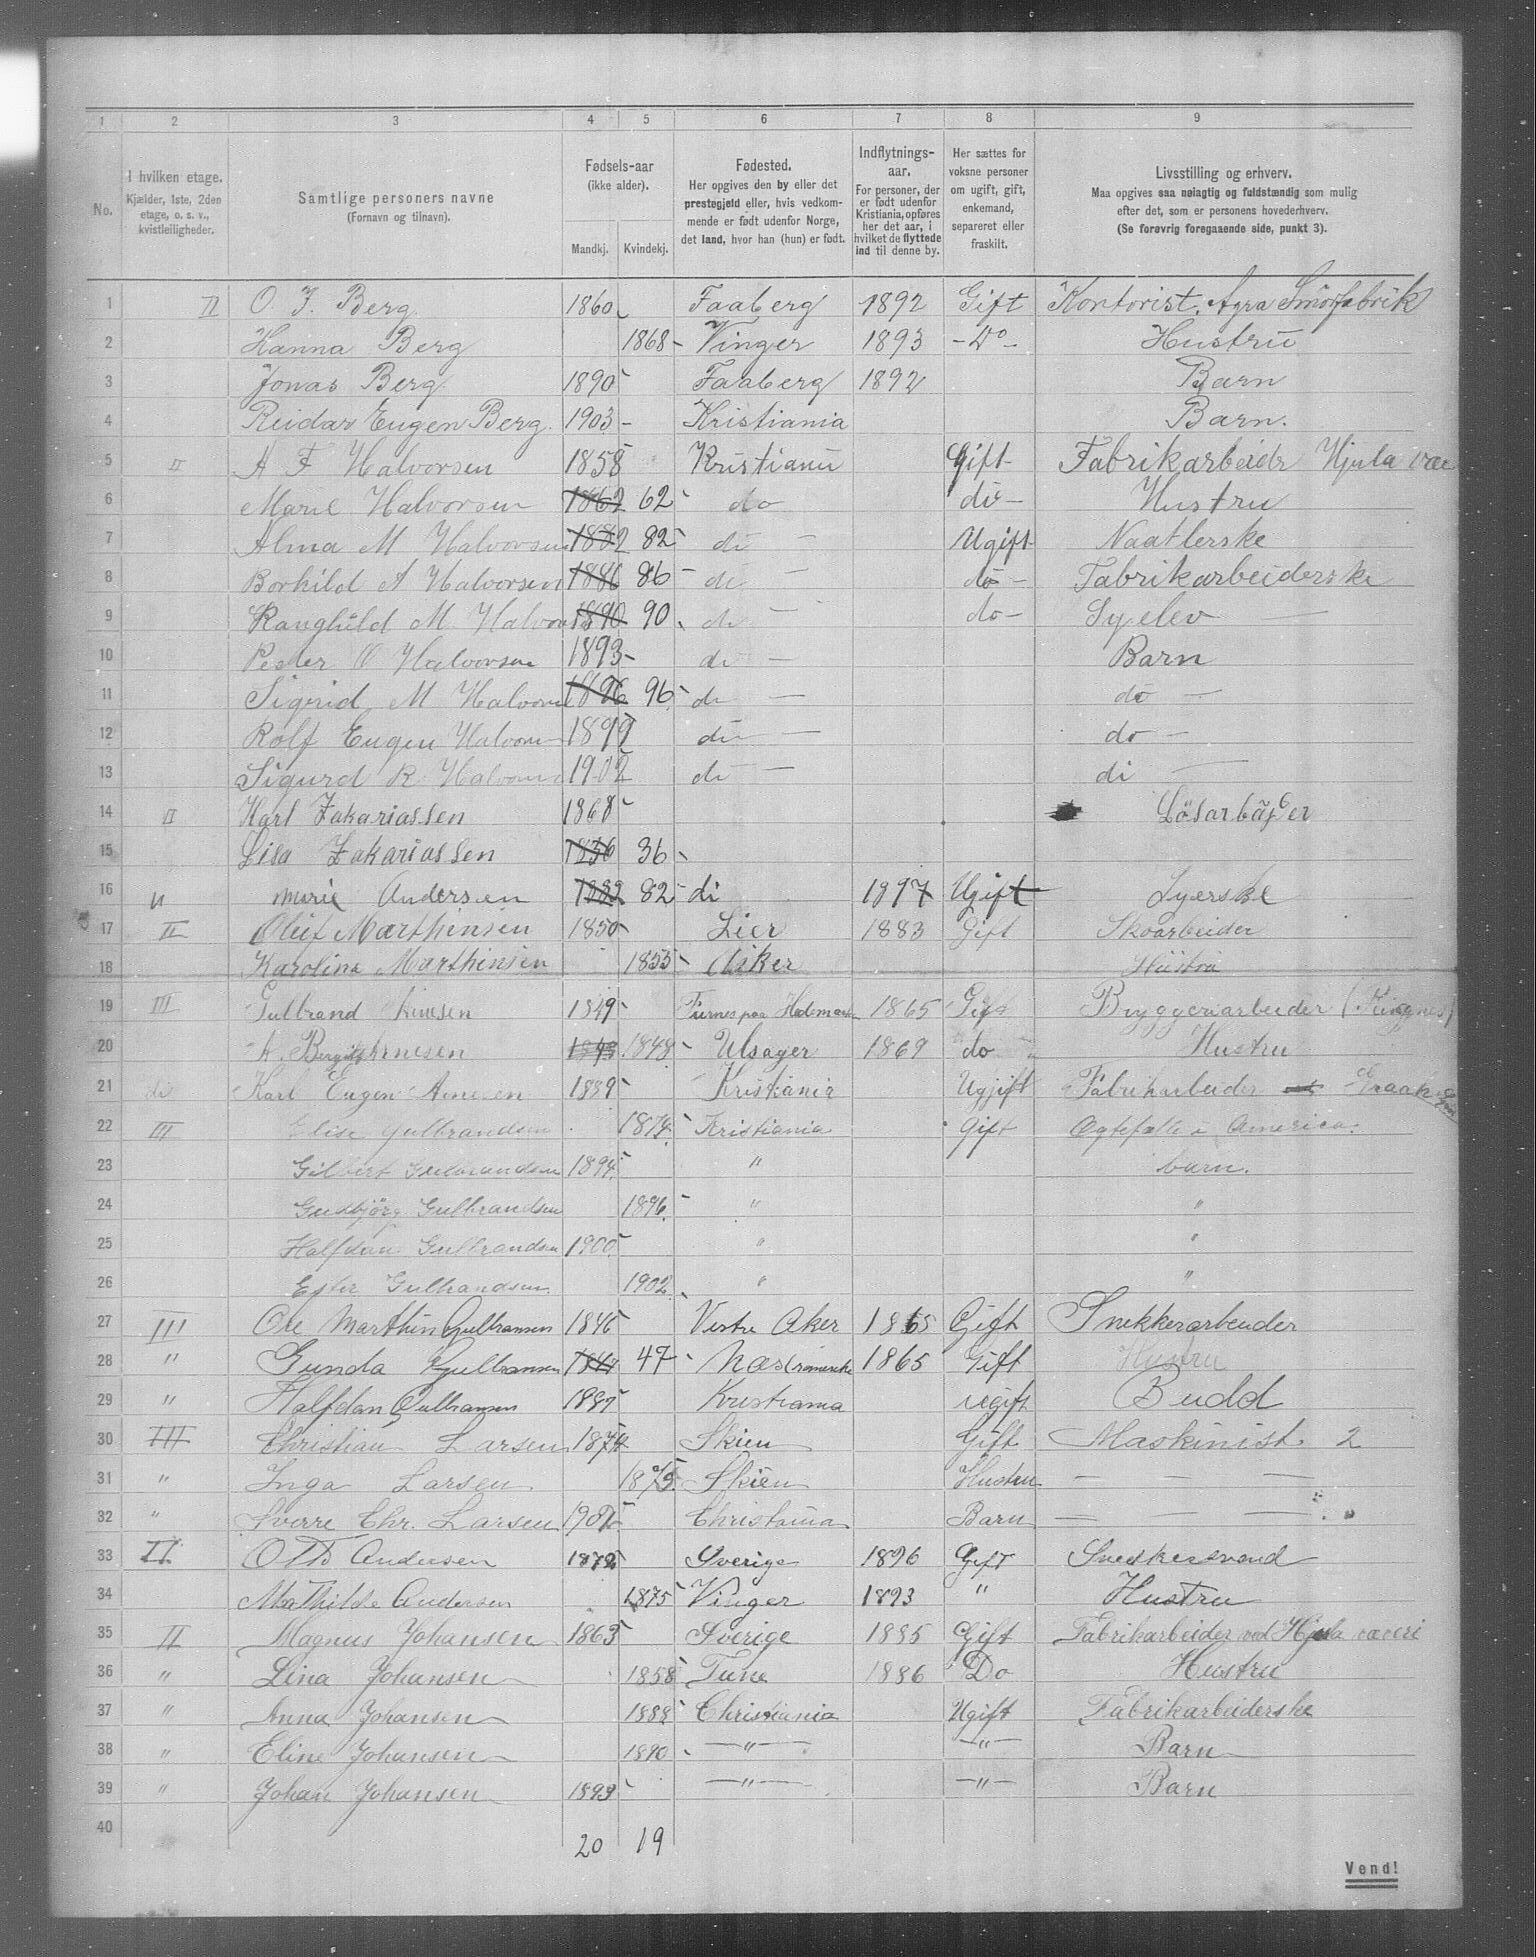 1 2 3 4 5 6 7 8 9
No.
I hvilken etage.
Kjælder, 1ste, 2den etage, o. s. v., kvistleiligheder.
Samtlige personers navne
(Fornavn og tilnavn).
Fødsels-aar
(ikke alder).
Mandkj. Kvindekj.
Fødested.
Her opgives den by eller det prestegjeld eller, hvis vedkommende er født udenfor Norge, det land, hvor han (hun) er født.
Indflytnings-aar.
For personer, der er født udenfor Kristiania, opføres her det aar, i hvilket de flyttede ind til denne by.
Her sættes for voksne personer om ugift, gift, enkemand, separeret eller fraskilt.
Livsstilling og erhverv.
Maa opgives saa nøiagtig og fuldstændig som mulig efter det, som er personens hovederhverv.
(Se forøvrig foregaaende side, punkt 3).
1 II O J. Berg 1860 Faaberg 1892 Gift Kontorist. Agra Smørfabrik
2 Hanna Berg 1868 Vinger 1893 Do Hustru
3 Jonas Berg 1890 Faaberg 1892 Barn
4 Reidar Eugen Berg. 1903 Kristiania Barn.
5 II A F Halvorsen 1858 Kristiania Gift Fabrikarbeidr Hjula
6 Marie Halvorsen 1862 62 do do Hustru
7 Alma M Halvorsen 1882 82 do Ugift
8 Borhild A Halvorsen 1886 86 do do Fabrikarbeiderske
9 Ranghild M Halvorsen 1890 90 do do Syelev
10 Peder O Halvorsen 1893 do Barn
11 Sigrid M Halvorsen 1896 96 do do
12 Rolf Eugen Halvorsen 1899 do do
13 Sigurd R Halvorsen 1902 do do
14 II Karl Zakariassen 1868
15 Lisa Zakariassen 1836 36
16 II Marie Andersen 1882 82 do 1897 Ugift Syerske
17 II Oluf Marthinsen 1850 Lier 1883 Gift Skoarbeider
18 Karoline Marthinsen 1855 Asker Hustru
19 III Gulbrand Arnesen 1849 Furnes paa Hedemarken 1865 Gift Bryggeriarbeider (Ringnes)
20 A. Arnesen 1848 1848 Ulsager 1869 do Hustru
21 do Karl Eugen Arnesen 1889 Kristiania Ugift Fabrikarbeider
22 III Elise Gulbrandsen 1874 Kristiania Gift Egtefælle i America.
23 Gilbert Gulbrandsen 1894 " barn.
24 Gudbjørg Gulbrandsen 1896 " "
25 Halfdan Gulbrandsen 1900 " "
26 Ester Gulbrandsen 1902 " "
27 III Ole Marthin Gulbransen 1846 Vestre Aker 1865 Gift Snekkerarbeider
28 " Gunda Gulbransen 1847 47 1865 Gift Hustru
29 " Halfdan Gulbransen 1887 Kristiania ugift Budd
30 III Christian Larsen 1874 Skien Gift Maskinist. 2
31 " Inga Larsen 1875 Skien Hustru — — —
32 " Sverre Chr. Larsen 1901 Christiania Barn — — —
33 II Otto Andersen 1872 Sverige 1896 Gift Snedkersvend
34 Mathilde Andersen 1875 Vinger 1893 " Hustru
35 II Magnus Johansen 1863 Sverige 1885 Gift Fabrikarbeider ved Hjula væveri
36 " Lina Johansen 1858 Tune 1886 Do Hustru
37 " Anna Johansen 1888 Christiania Ugift Fabrikarbeiderske
38 " Eline Johansen 1890 —"— —"— Barn
39 " Johan Johansen 1893 —"— —"— Barn
40
20 19
Vend!